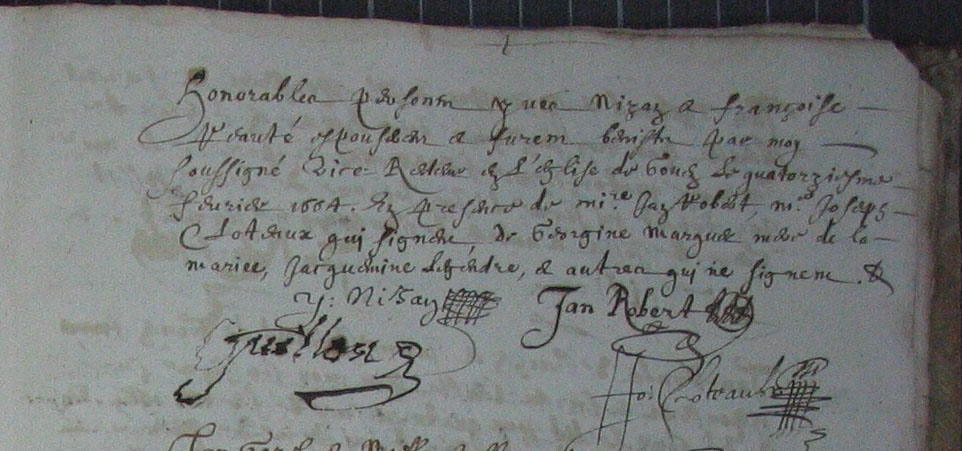 Honorables personn yves Nizaz & françoise
espousern & furem beniste par moy
soussigné Vice Recteur en l'église de le quatorziesme
feuvrier 1664. En presence de mi.re Jan Robert, m.e Joseph
Cloteaux qui signen, de Georgine Marquer mere de la
mariee, Jacquemine Legendre, & autres qui ne signem. &
y: Nizay Jan Robert
Jo: Cloteaux